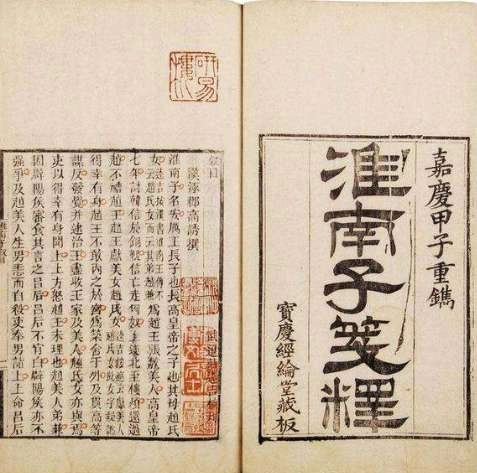 嘉慶甲子重鐫
淮南子箋釋
寶慶經綸堂藏板
敘目
漢涿郡高誘撰
淮南子名安厲王長子也長高皇帝之子也其母趙氏
女為趙王張敖美人高皇帝
七年討韓信於銅鞮信亡走匈奴上遂北至樓煩還過
趙不禮趙王趙王獻美女趙氏女
得幸有身趙王不敢內之於宮為築舍於外及貫高等
謀反發覺并逮治王盡收王家及美人趙氏女亦與焉
吏以得幸有身聞上上方怒趙王未理也趙美人弟兼
因辟陽侯審食其言之呂后呂后不肯白辟陽侯亦不
強爭及趙美人生男恚而自殺吏奉男詣上上命呂后